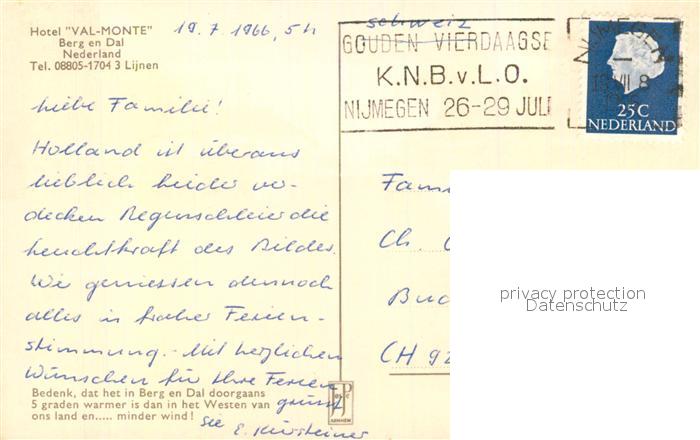 Hotel "VAL-MONTE"
Berg en Dal
Nederland
Tel. 08805-1704 3 Lijnen
19.7.1966, 5 h
Liebe Familie!
Holland ist überaus
lieblich leider ver-
decken Regenschleier die
Leuchtkraft des Bildes.
Wir geniessen dennoch
alles in froher Ferien-
stimmung. - Mit herzlichen
Wünschen für Ihre Ferien
grüsst
Sie E.
Bedenk, dat het in Berg en Dal doorgaans
5 graden warmer is dan in het Westen van
ons land en..... minder wind!
JP
ARNHEM
schweiz
GOUDEN VIERDAAGSE
K.N.B.v.L.O.
NIJMEGEN 26-29 JULI
NIJMEGEN
25C
NEDERLAND
Fam
Ch.
CH 92
privacy protection
Datenschutz